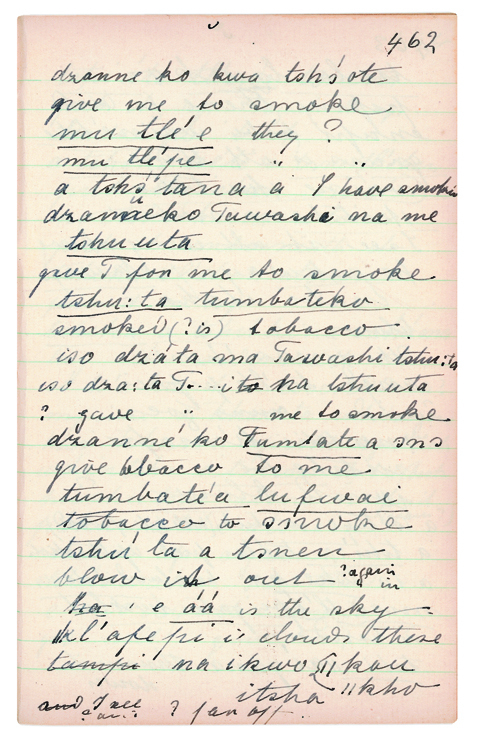 462
dzanne ko kwa tshś ote
give me to smoke
mu tlé e they ?
mu tlépe " "
a tshś tana a I have smokin
dzannäeko Tawashe na me
tshuuta
gave T for me to smoke
tshu:ta tumbateko
smoked (? is) tobacco
iso dzáta ma Tawashi tshu:ta
iso dza:ta T... ito na tshuuta
? gave " me to smoke
dzanné ko tumbate a sns
give tobacco to me
tumbaté a lufwai
tobacco to smoke
tshú ta a tsnen
blow it out ? again
" in
ha : e áá is the sky
kl' afepi i clouds these
tampi na ikwo ǁkau
itsha ǁkho
and I see
? far off